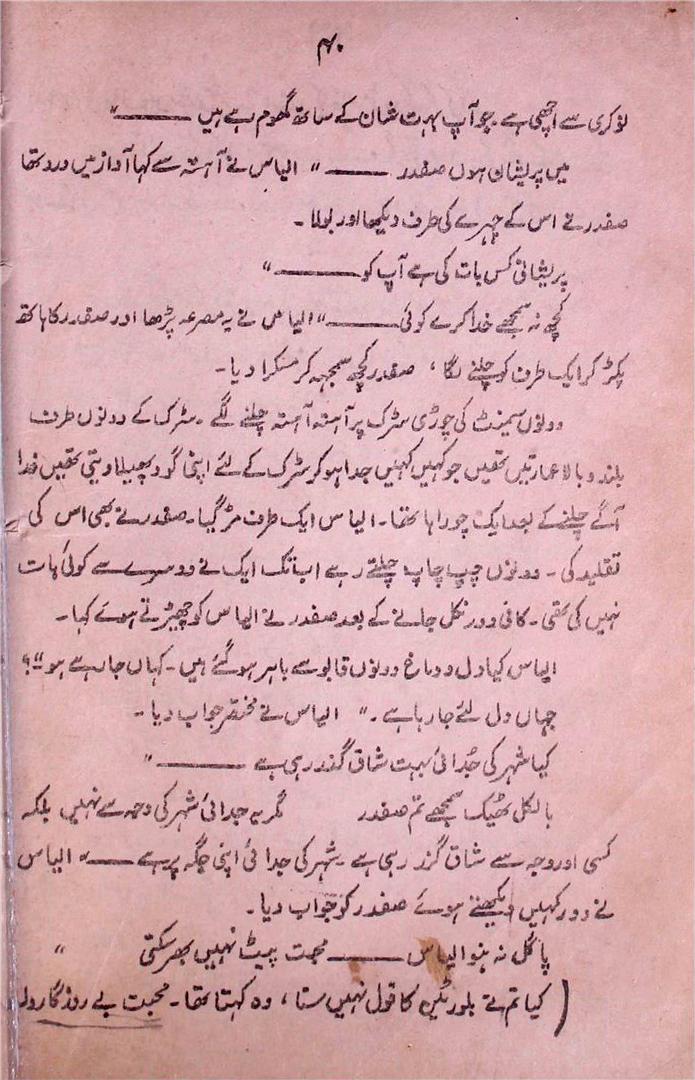 ۴۰
نوکری سے اچھی ہے۔ جو آپ بہت شان کے ساتھ گھوم رہے ہیں ــــــــ"
میں پریشان ہوں صفدر ــــــــ" الیاس نے آہستہ سے کہا آواز میں درد تھا
صفدر نے اس کے چہرے کی طرف دیکھا اور بولا۔
پریشانی کس بات کی ہے آپ کو ــــــــ"
کچھ نہ سمجھے خدا کرے کوئی ــــــــ" الیاس نے یہ مصرعہ پڑھا اور صفدر کا ہاتھ
پکڑ کر ایک طرف کو چلنے لگا، صفدر کچھ سمجھ کر مسکرا دیا۔
دونوں سیمنٹ کی چوڑی سڑک پر آہستہ آہستہ چلنے لگے۔ سڑک کے دونوں طرف
بلند و بالا عمارتیں تھیں جو کہیں کہیں جدا ہو کر سڑک کے لئے اپنی گود پھیلا دیتی تھیں ذرا
آگے چلنے کے بعد ایک چوراہا تھا۔ الیاس ایک طرف مڑ گیا۔ صفدر نے بھی اس کی
تقلید کی۔ دونوں چپ چاپ چلتے رہے اب تک ایک نے دوسرے سے کوئی بات
نہیں کی تھی۔ کافی دور نکل جانے کے بعد صفدر نے الیاس کو چھیڑتے ہوئے کہا۔
الیاس کیا دل و دماغ دونوں قابو سے باہر ہو گئے ہیں۔ کہاں جا رہے ہو"؟
جہاں دل لئے جا رہا ہے۔" الیاس نے مختصر جواب دیا۔
کیا شہر کی جُدائی بہت شاق گذر رہی ہے ــــــــ"
بالکل ٹھیک سمجھے تم صفدر مگر یہ جدائی شہر کی وجہ سے نہیں بلکہ
کسی اور وجہ سے شاق گزر رہی ہے۔ شہر کی جدائی اپنی جگہ پر ہے ــــــــ" الیاس
نے دور کہیں دیکھتے ہوئے صفدر کو جواب دیا۔
پاگل نہ بنو الیاس ــــــــ محبت پیٹ نہیں بھر سکتی "
(کیا تم نے بلورٹن کا قول نہیں سنا، وہ کہتا تھا۔ محبت بے روزگاروں